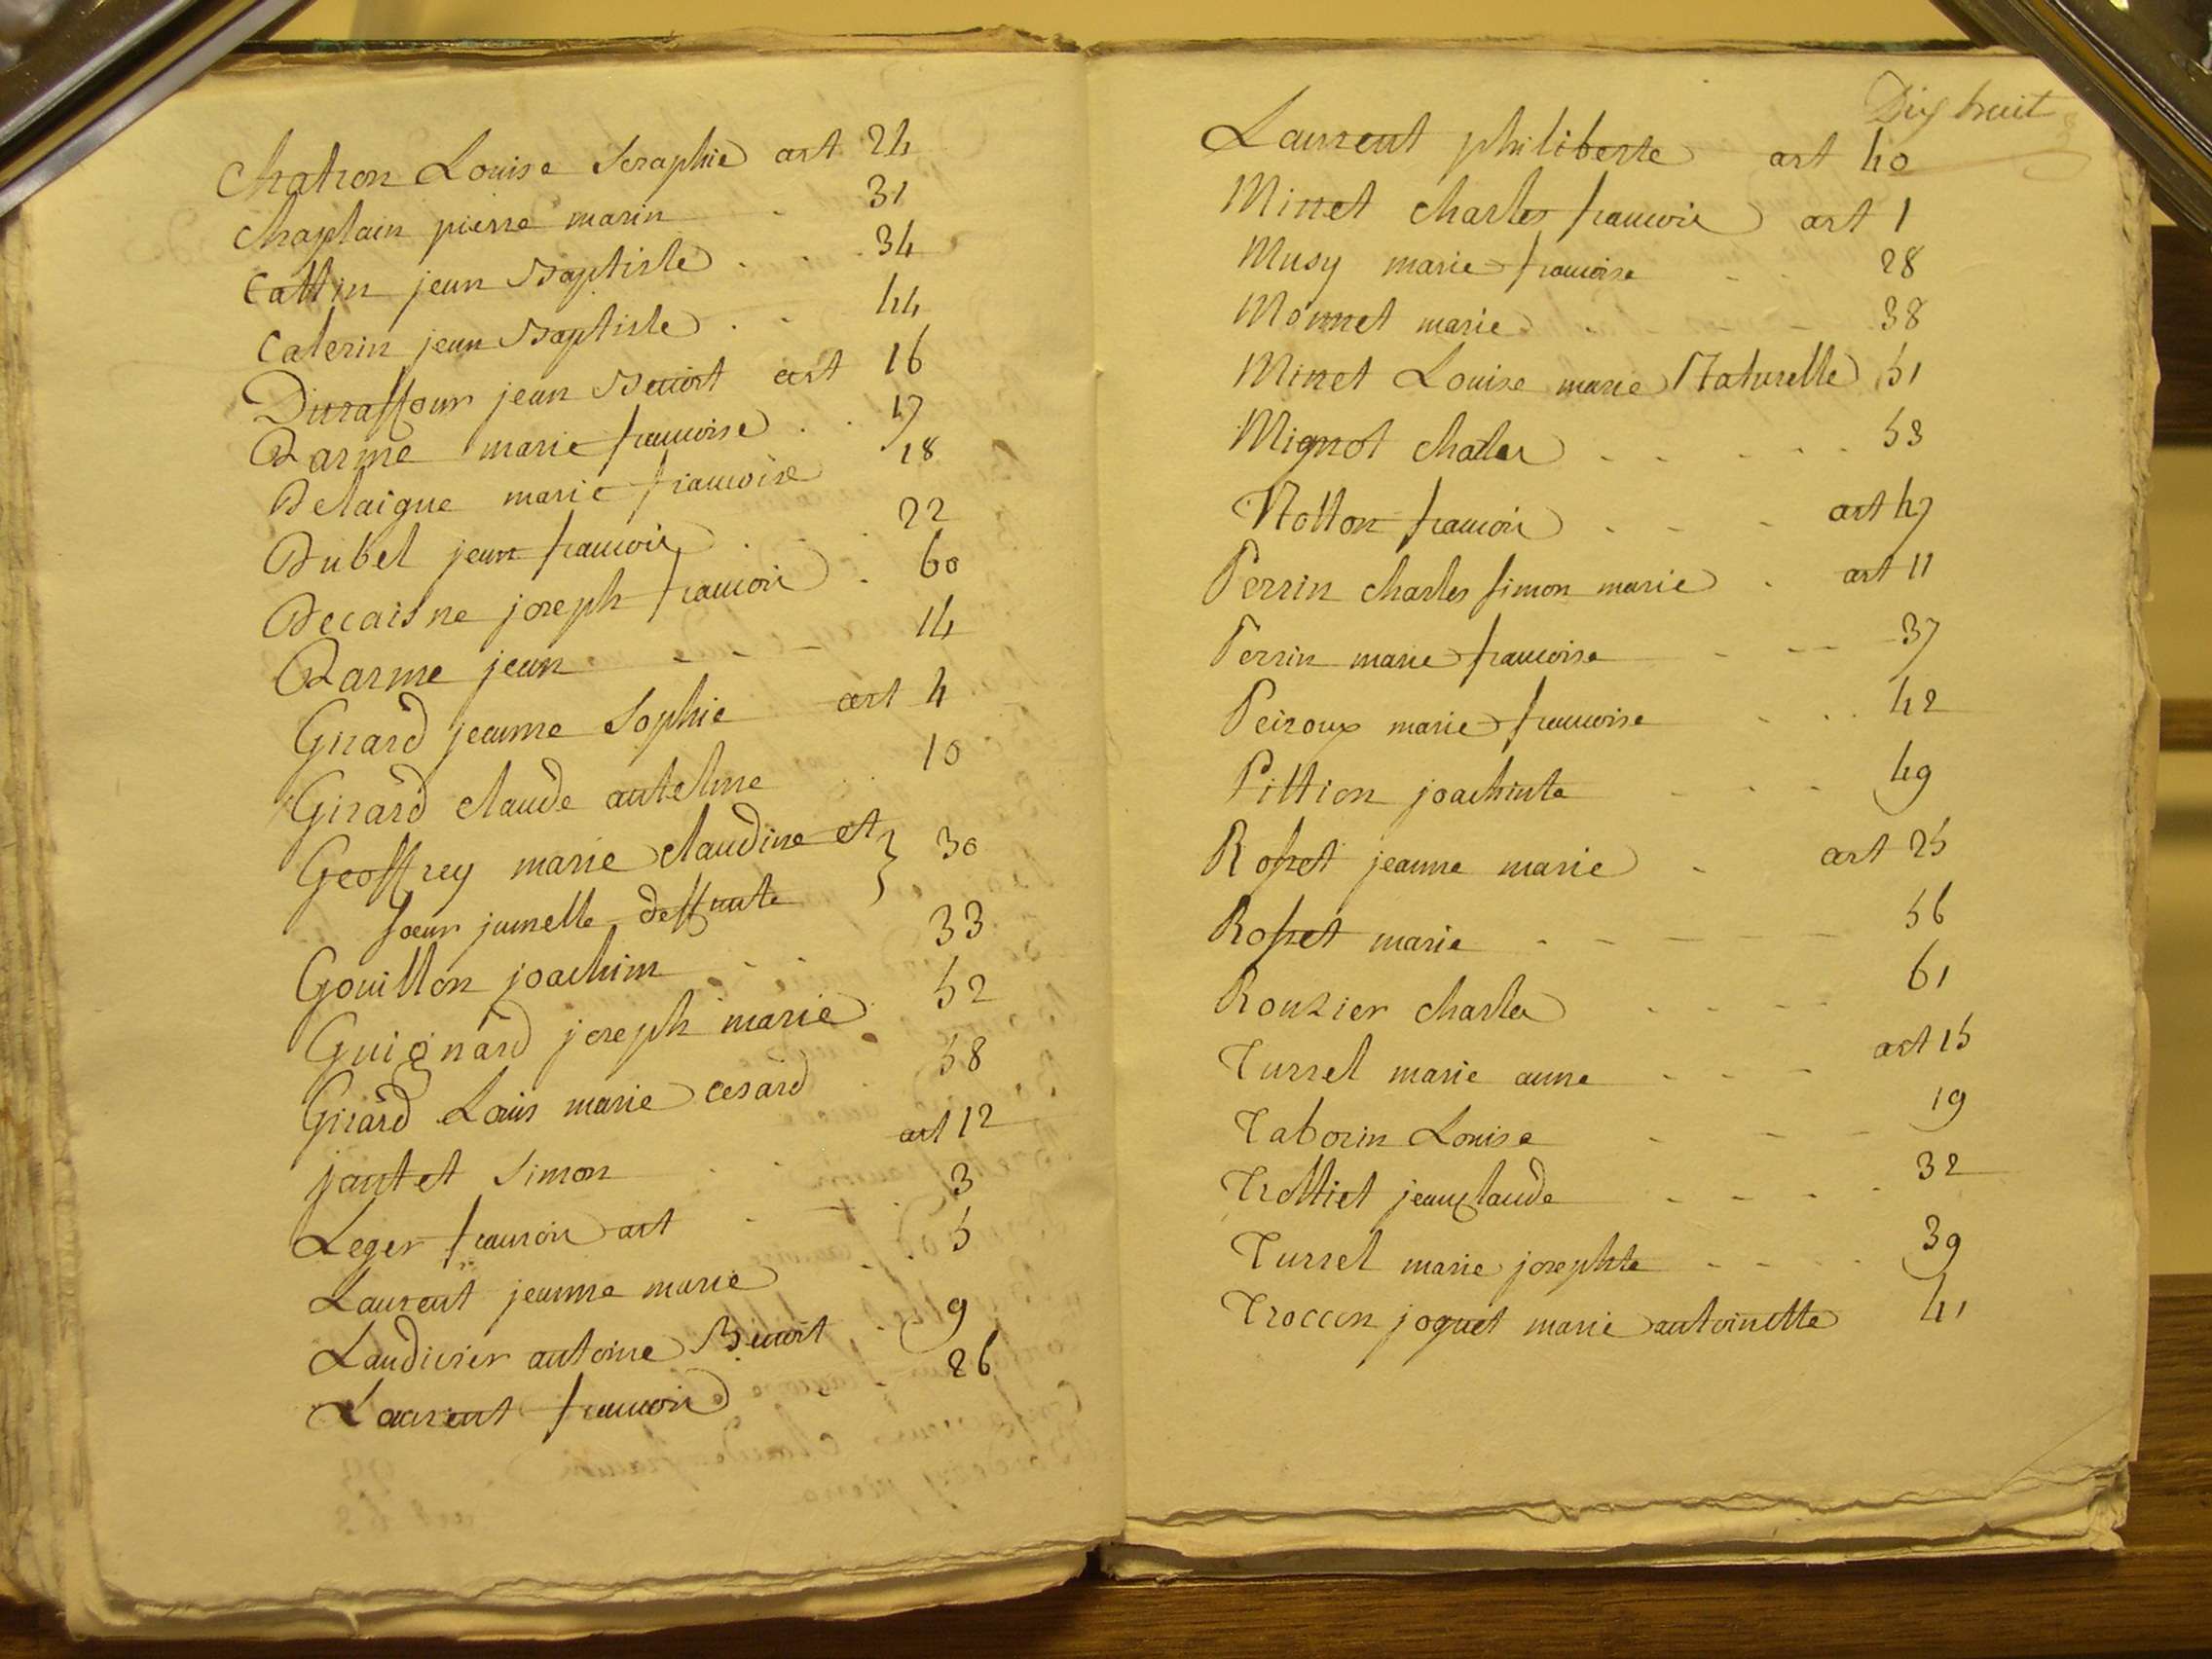 Chatron Louise Seraphie art 24
Chaplain pierre marin . 31
Cattin jean Baptiste . . . 34
Caterin jean Baptiste . . 44
Duraffour jean Benoist art 16
Darme marie francoise . . 17
Delaigue marie francoise 18
Dubel jean francois . . . 22
Decaisne joseph francois . 60
Darme jean - - - 14
Girard jeanne Sophie art 4
Girard claude antelme . . 10
Geoffrey marie claudine et } 30
soeur jumelle deffunte
Gouillon joachim - - 33
Guignard joseph marie . 52
Girard Louis marie cesard 58
jantet Simon . . art 12
Leger francois art . . 3
Laurent jeanne marie . . 5
Laudivier antoine Benoit . 9
Laurent francois . . 26
Dix huit
Laurent philiberte art 40
Minet charles francois art 1
Musy marie francoise - . 28
Monnet marie . 38
Minet Louise marie Naturelle 51
Mignot charles . . . . . 53
Notton francois . - - art 47
Perrin charles simon marie . art 11
Perrin marie francoise - -- 37
Peiroux marie francoise . . . 42
Pittion joachinte . . . 49
Rosset jeanne marie . art 25
Rosset marie - - - - - 56
Rouzier charles . - - - 61
Turrel marie anne - - - art 15
Taborin Louise - - - 19
Trolliet jeanclaude - - - . 32
Turrel marie josephte . - - . 39
Troccon joquet marie antoinette 41